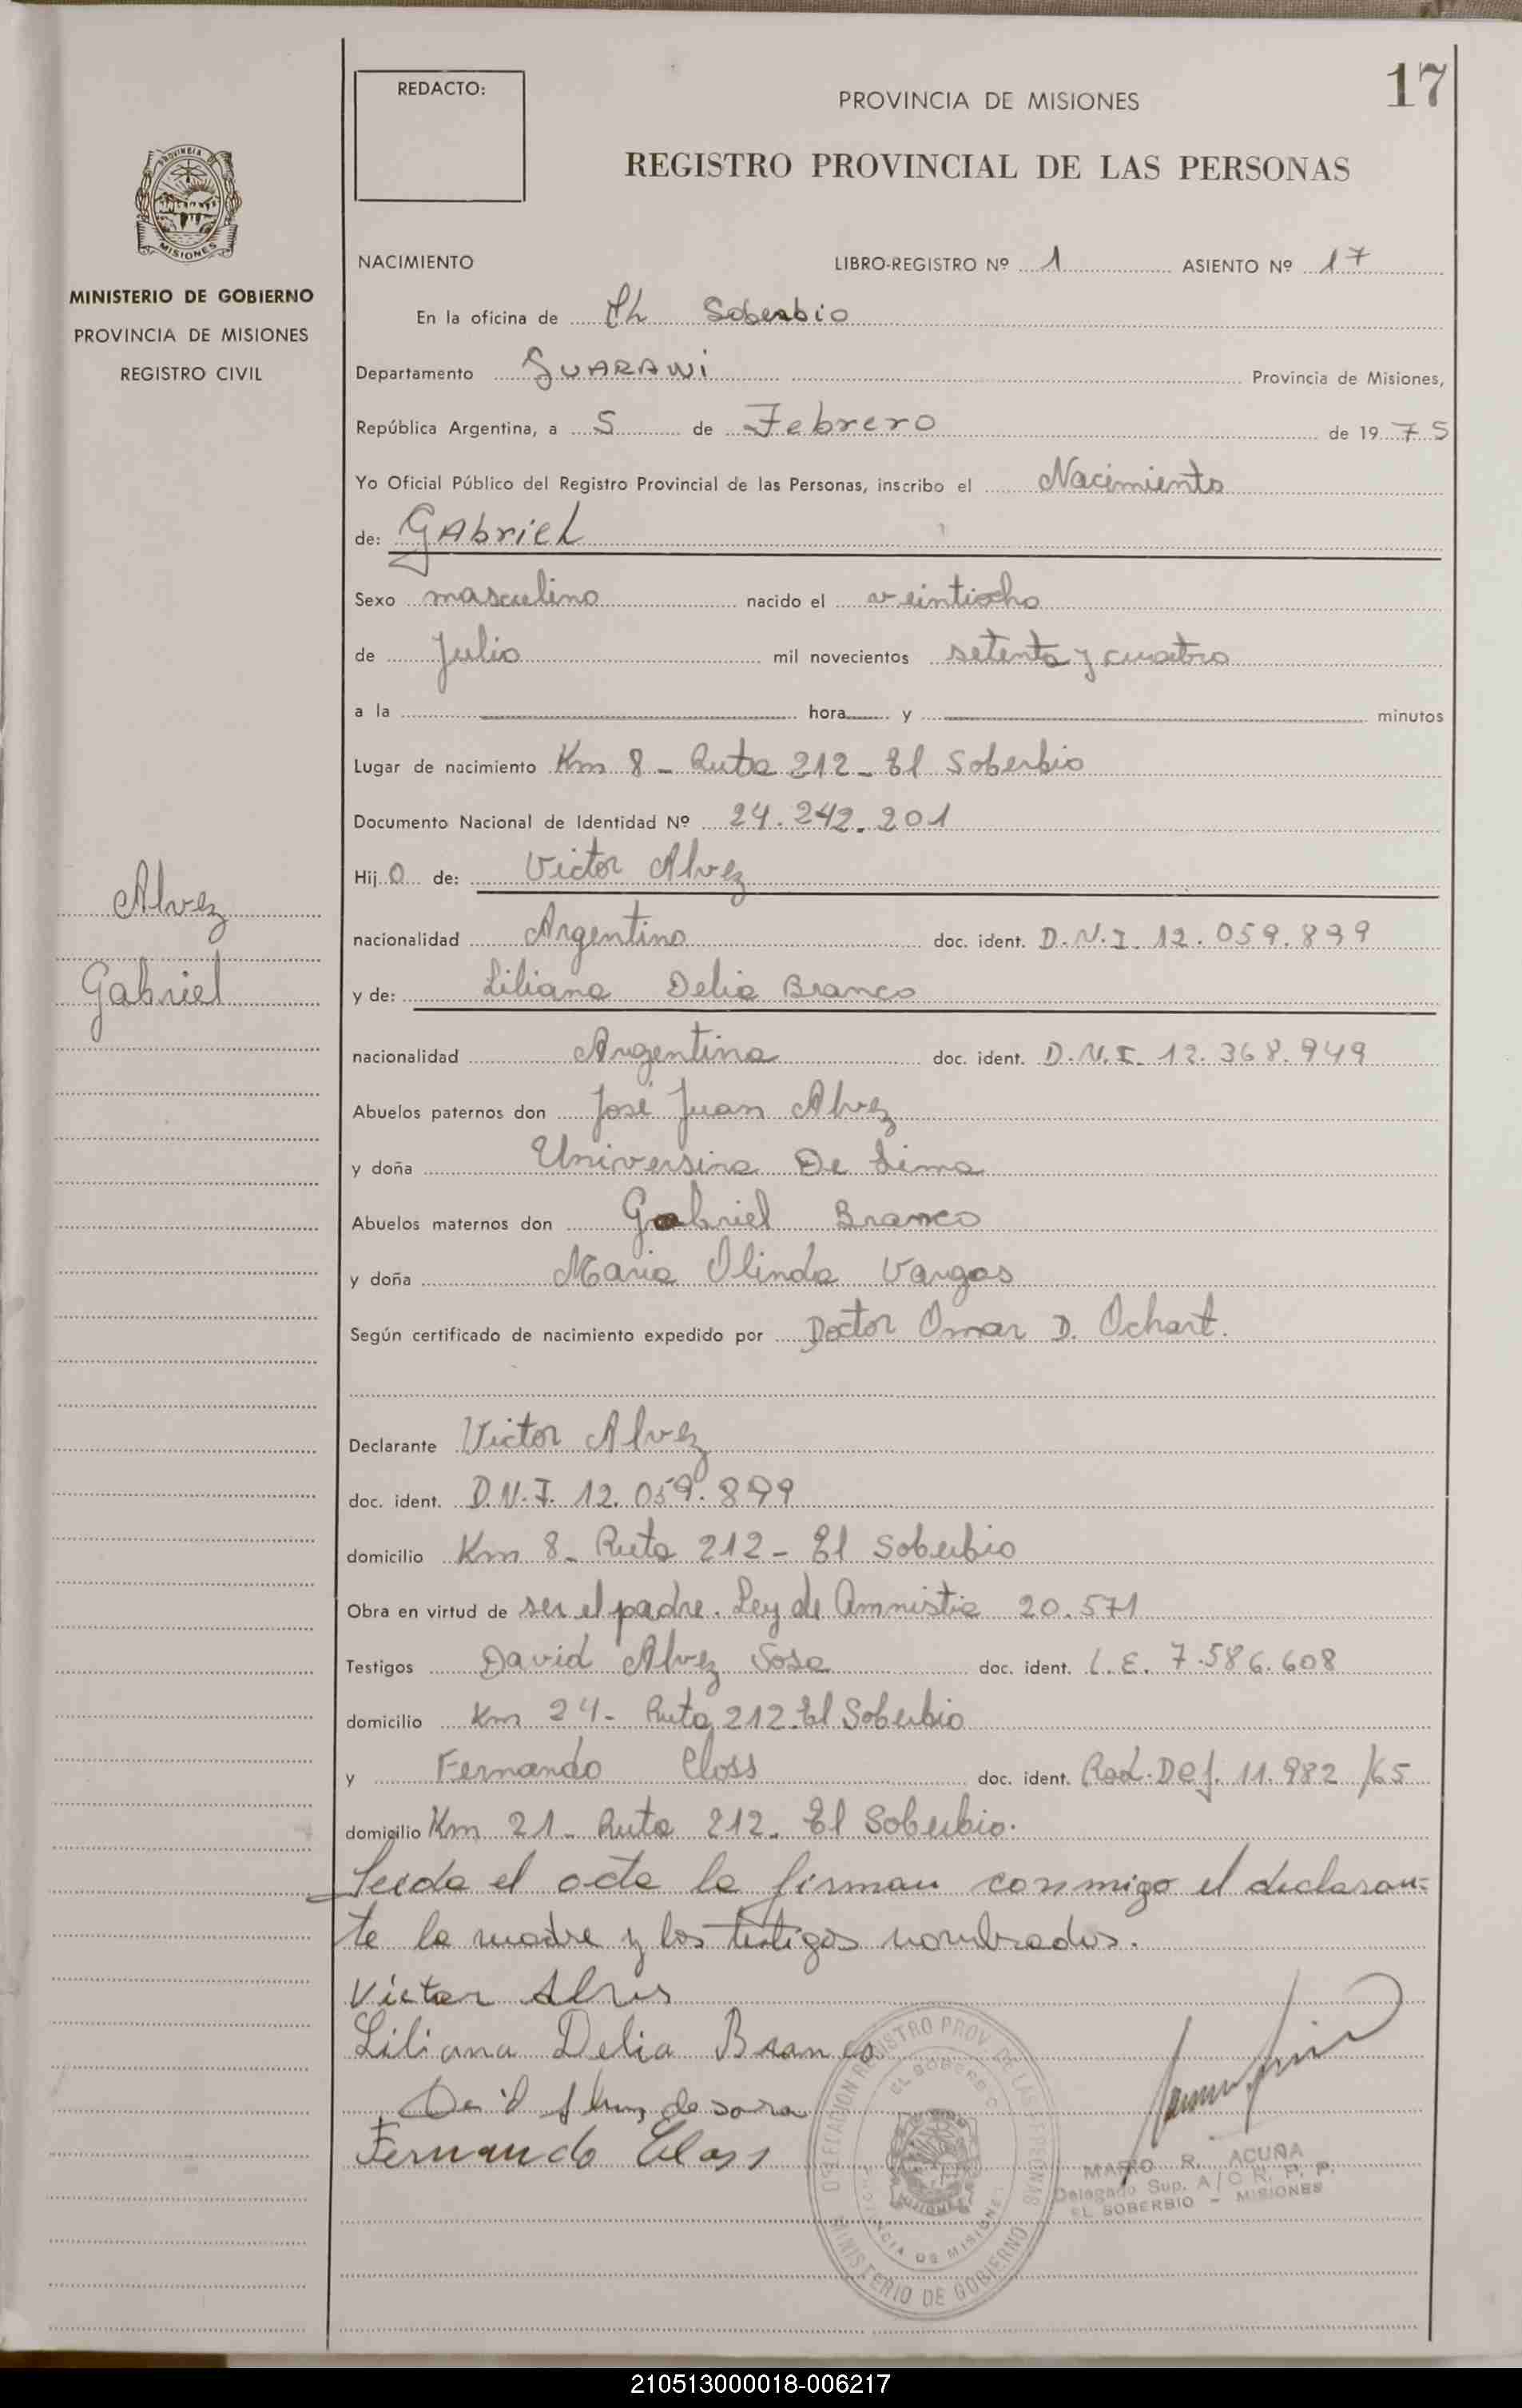 17
REDACTO:
PROVINCIA DE MISIONES
REGISTRO PROVINCIAL DE LAS PERSONAS
PROVINCIA DE
MISIONES
MINISTERIO DE GOBIERNO
PROVINCIA DE MISIONES
REGISTRO CIVIL
NACIMIENTO LIBRO-REGISTRO Nº 1 ASIENTO Nº 17
En la oficina de El Soberbio
Departamento GUARANI Provincia de Misiones,
República Argentina, a 5 de Febrero de 1975
Yo Oficial Público del Registro Provincial de las Personas, inscribo el Nacimiento
de: GAbriel
Sexo masculino nacido el veintiocho
de Julio mil novecientos setenta y cuatro
a la hora y minutos
Lugar de nacimiento Km 8 - Ruta 212 - El Soberbio
Documento Nacional de Identidad Nº 24.242.201
Hijo de: Victor Alvez
nacionalidad Argentino doc. ident. D.N.I. 12.059.899
y de: Liliana Delia Branco
nacionalidad Argentina doc. ident. D.N.I. 12.368.949
Abuelos paternos don José Juan Alvez
y doña Universina De Lima
Abuelos maternos don Gabriel Branco
y doña Maria Olinda Vargas
Según certificado de nacimiento expedido por Doctor Omar D. Ochart.
Alvez
Gabriel
Declarante Victor Alvez
doc. ident. D.N.I. 12.059.899
domicilio Km 8 - Ruta 212 - El Soberbio
Obra en virtud de ser el padre. Ley de Amnistia 20.571
Testigos David Alvez Sosa doc. ident. L.E. 7.586.608
domicilio Km 24 - Ruta 212 - El Soberbio
y Fernando Closs doc. ident. Rad. Def. 11.982 /65
domicilio Km 21 - Ruta 212 - El Soberbio.
Leida el acta la firman conmigo el declaran-
te la madre y los testigos nombrados.
Victor Alves
Liliana Delia Branco
Fernando Closs
DELEGACION REGISTRO PROV. DE LAS PERSONAS
EL SOBERBIO
PROVINCIA DE MISIONES
MINISTERIO DE GOBIERNO
MARIO R. ACUÑA
Delegado Sup. A/C R. P. P.
EL SOBERBIO - MISIONES
210513000018-006217